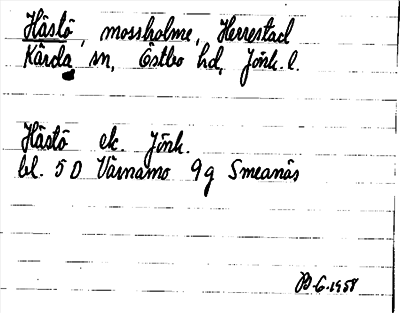 Hästö, mossholme, Herrestad
Kärda sn, Östbo hd, Jönk. l.
Hästö ek. Jönk.
bl. 5D Värnamo 9g Smeanäs
B-G. 1958